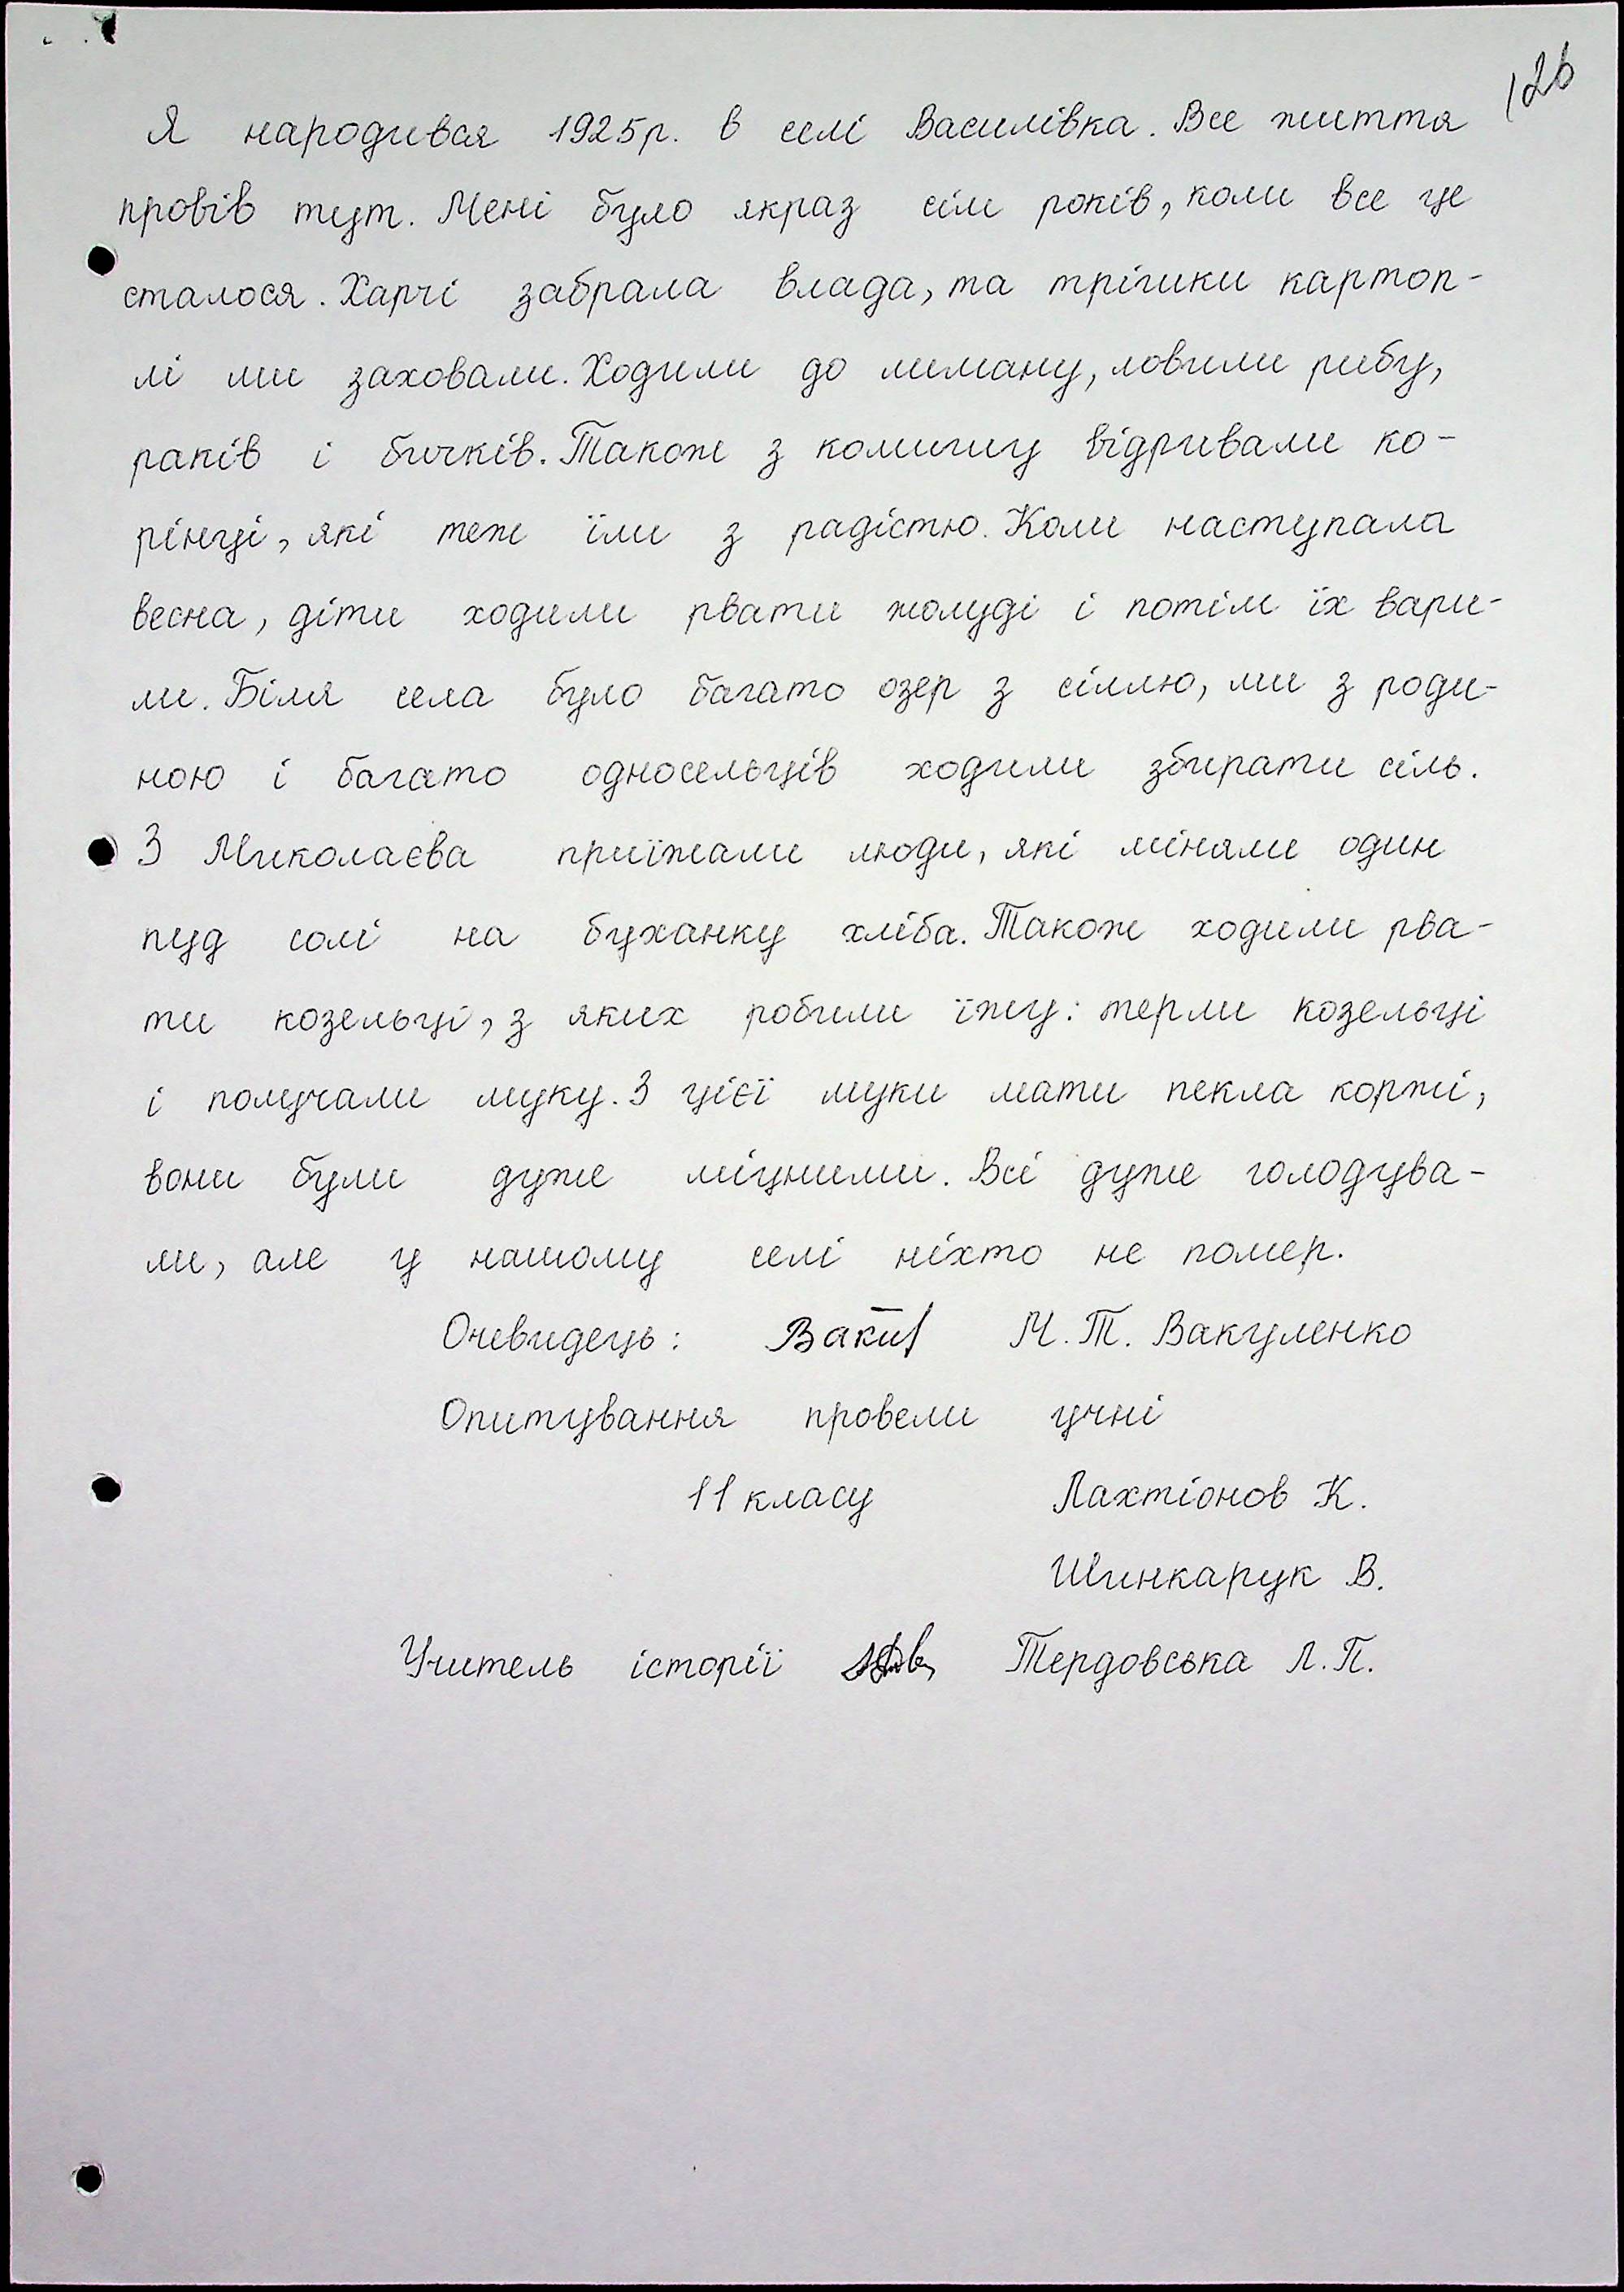 126
Я народився 1925р. в селі Василівка. Все життя
провів тут. Мені було якраз сім років, коли все це
сталося. Харчі забрала влада, та трішки картоп-
лі ми заховали. Ходили до лиману, ловили рибу,
раків і бичків. Також з комишу відривали ко-
рінці, які теж їли з радістю. Коли наступала
весна, діти ходили рвати жолуді і потім їх вари-
ли. Біля села було багато озер з сіллю, ми з роди-
ною і багато односельців ходили збирати сіль.
З Миколаєва приїжали люди, які міняли один
пуд солі на буханку хліба. Також ходили рва-
ти козельці, з яких робили їжу: терли козельці
і получали муку. З цієї муки мати пекла коржі,
вони були дуже міцними. Всі дуже голодува-
ли, але у нашому селі ніхто не помер.
Очевидець: М. Т. Вакуленко
Опитування провели учні
11 класу Лахтіонов К.
Шинкарук В.
Учитель історії Тердовська Л. П.